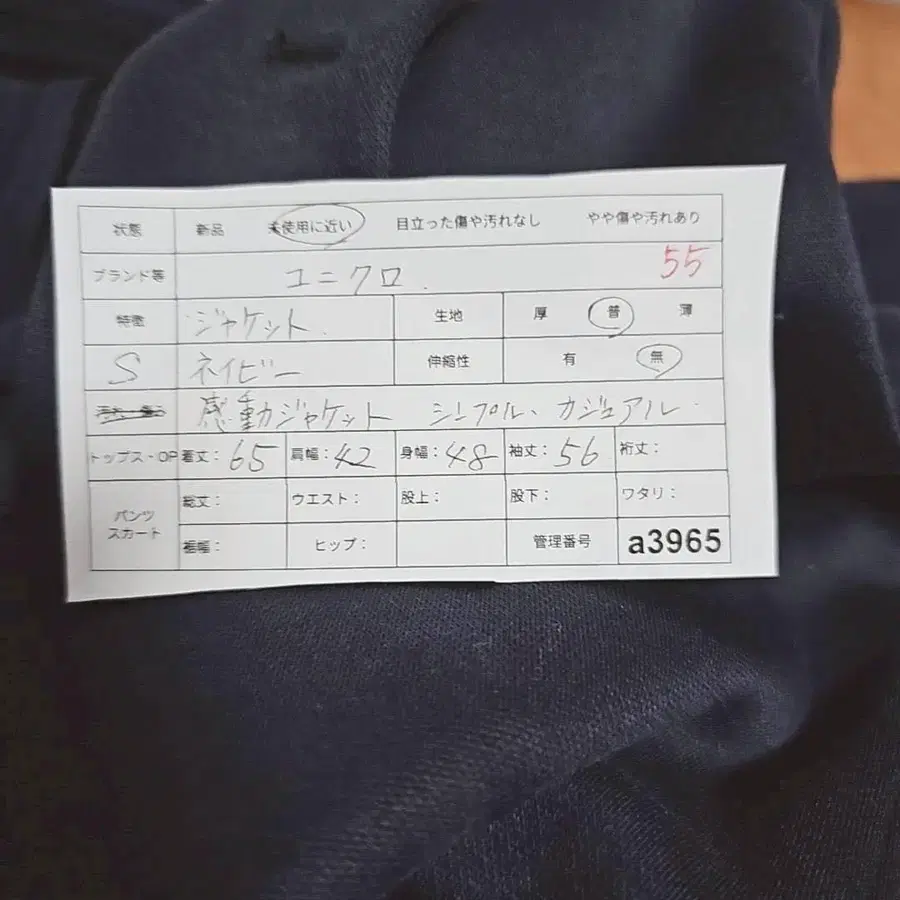 状態 新品 未使用に近い 目立った傷や汚れなし やや傷や汚れあり
ブランド等 ユニクロ 55
特徴 ジャケット 生地 厚 普 薄
S ネイビー 伸縮性 有 無
感動ジャケット シンプル、カジュアル
トップス・OP 着丈:65 肩幅:42 身幅:48 袖丈:56 裄丈:
パンツ 総丈: ウエスト: 股上: 股下: ワタリ:
スカート 裾幅: ヒップ: 管理番号 a3965